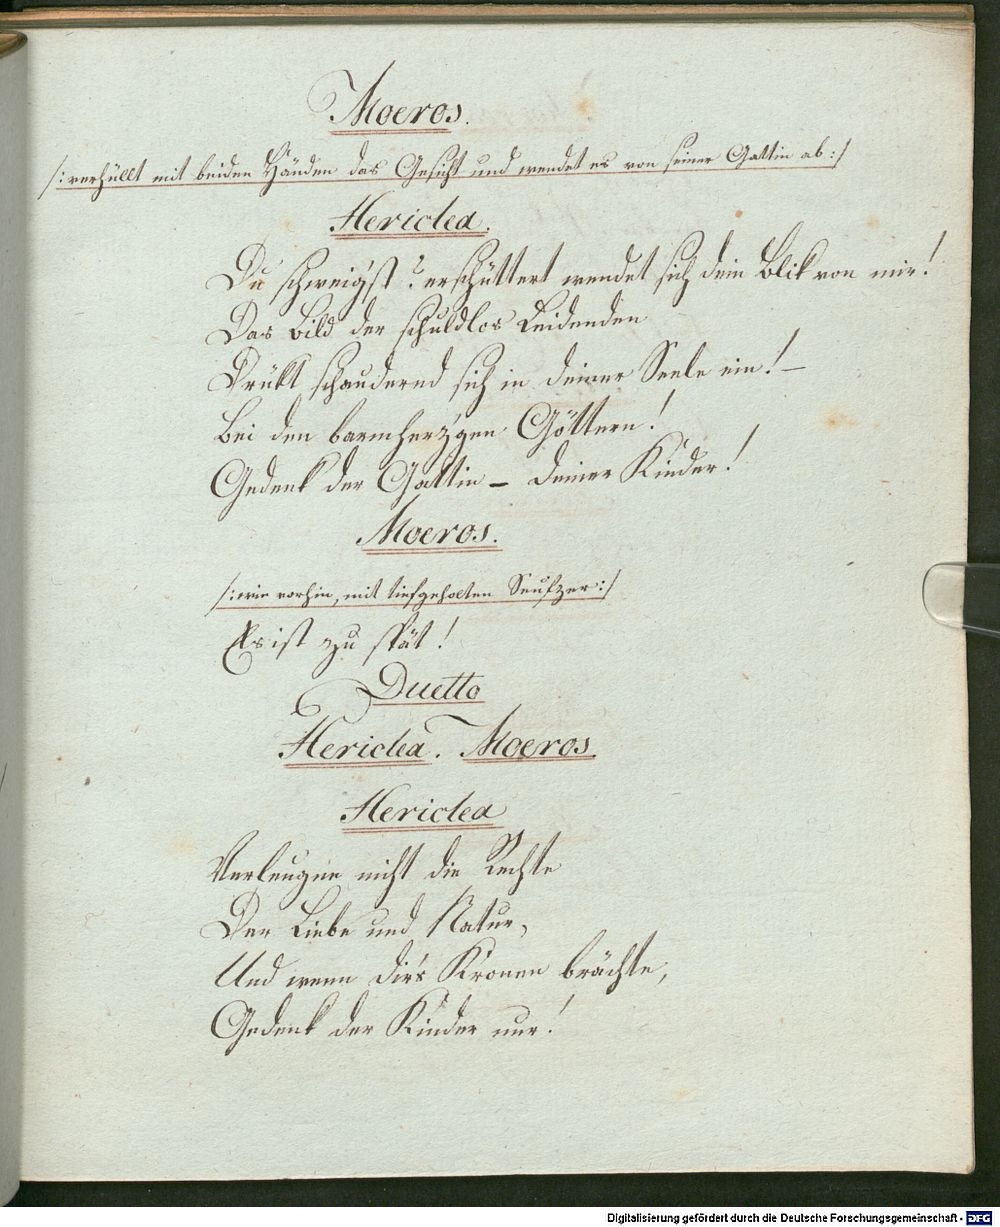 Moeros.
/: verhüllt mit beiden Händen das Gesicht und wendet es von seiner Gattin ab :/
Hericlea.
Du schweigst? erschüttert wendet sich dein Blik von mir!
Das Bild der schuldlos Leidenden
Drükt schaudernd sich in deiner Seele ein! –
Bei den barmherz'gen Göttern!
Gedenk der Gattin – deiner Kinder!
Moeros.
/: wie vorhin, mit tiefgeholten Seufzer :/
Es ist zu spät!
Duetto
Hericlea. Moeros.
Hericlea
Verleugne nicht die Rechte
Der Liebe und Natur,
Und wenn dir's Kronen brächte,
Gedenk der Kinder nur!
Digitalisierung gefördert durch die Deutsche Forschungsgemeinschaft - DFG